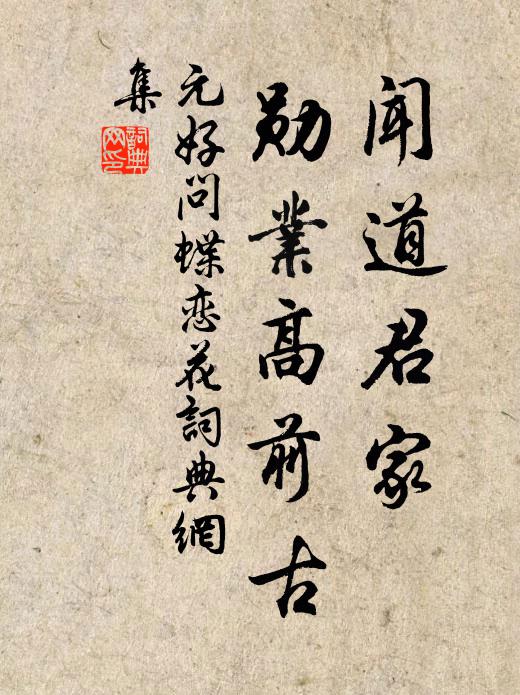 闻道君家
勋業高前古
元好问蝶恋花詞典網
集
詞典
网印